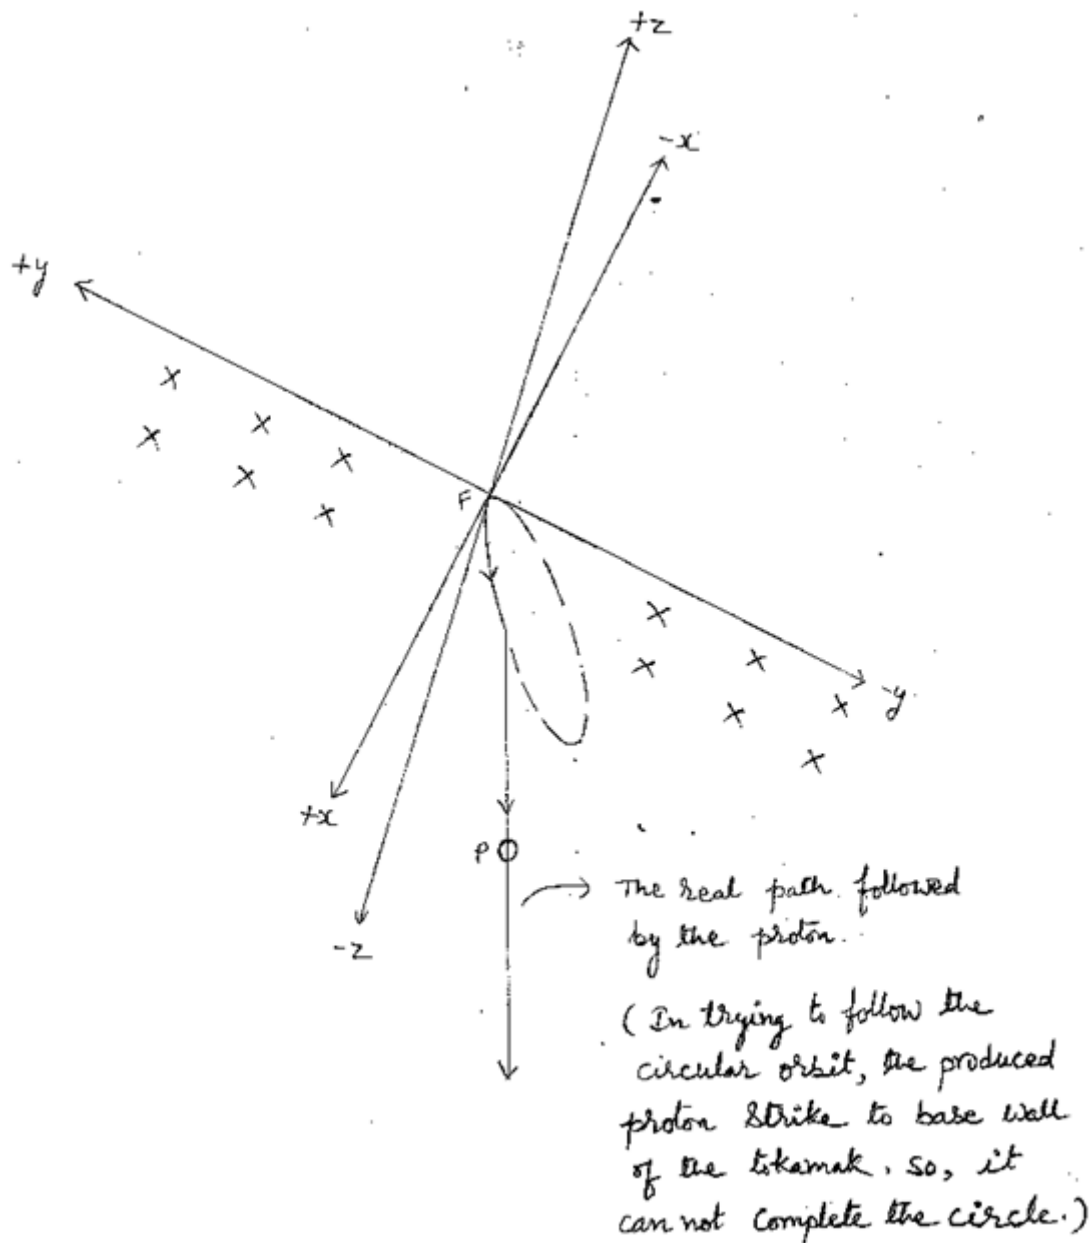 +z
-x
+y
F
-y
+x
P
-z
The real path followed
by the proton.
(In trying to follow the
circular orbit, the produced
proton strike to base wall
of the tokamak. so, it
can not complete the circle.)